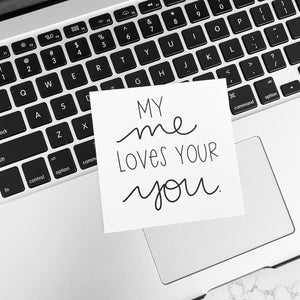 MY
me
LOVES YOUR
you.